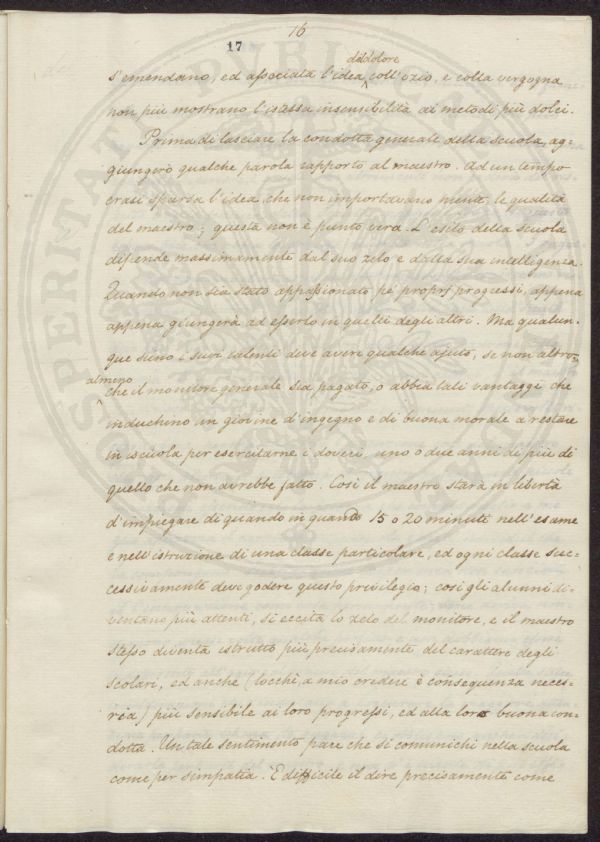 16
17
di dolore
s'emendano, ed associata l'idea coll'ozio, e colla vergogna
non più mostrano l'istessa insensibilità ai metodi più dolci.
Prima di lasciare la condotta generale della scuola, ag=
giungerò qualche parola rapporto al maestro. Ad un tempo
erasi sparsa l'idea, che non importavano niente, le qualità
del maestro; questa non è punto vera. L'esito della scuola
dipende massimamente dal suo zelo e dalla sua intelligenza.
Quando non sia stato appassionato pe' proprj progressi, appena
appena giungerà ad esserlo in quelli degli altri. Ma qualun-
que sieno i suoi talenti deve avere qualche ajuto, se non altro
almeno
che il monitore generale sia pagato, o abbia tali vantaggi che
induchino un giovine d'ingegno e di buona morale a restare
in iscuola per esercitarne i doveri, uno o due anni di più di
quello che non avrebbe fatto. Così il maestro starà in libertà
d'impiegare di quando in quando 15 o 20 minuti nell'esame
e nell'istruzione di una classe particolare, ed ogni classe suc-
cessivamente deve godere questo privilegio; così gli alunni di-
ventano più attenti, si eccita lo zelo del monitore, e il maestro
stesso diventa istrutto più precisamente del carattere degli
scolari, ed anche (locchè, a mio credere è conseguenza neces-
ria) più sensibile ai loro progressi, ed alla loro buona con-
dotta. Un tale sentimento pare che si comunichi nella scuola
come per simpatia. È difficile il dire precisamente come